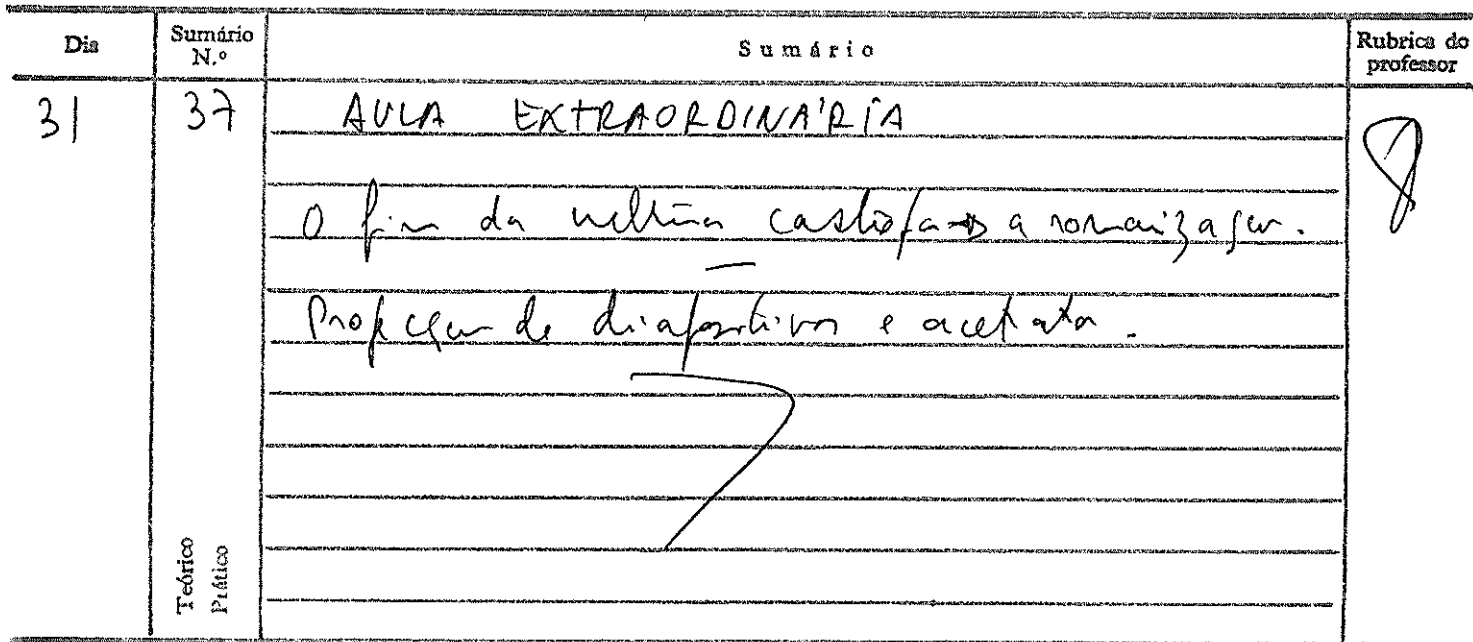 Dia
Sumário N.º
Sumário
Rubrica do professor
31
37
AULA EXTRAORDINÁRIA
O fim da cultura castreja → a romanização.
Projecção de diapositivos e acetatos.
Teórico
Prático